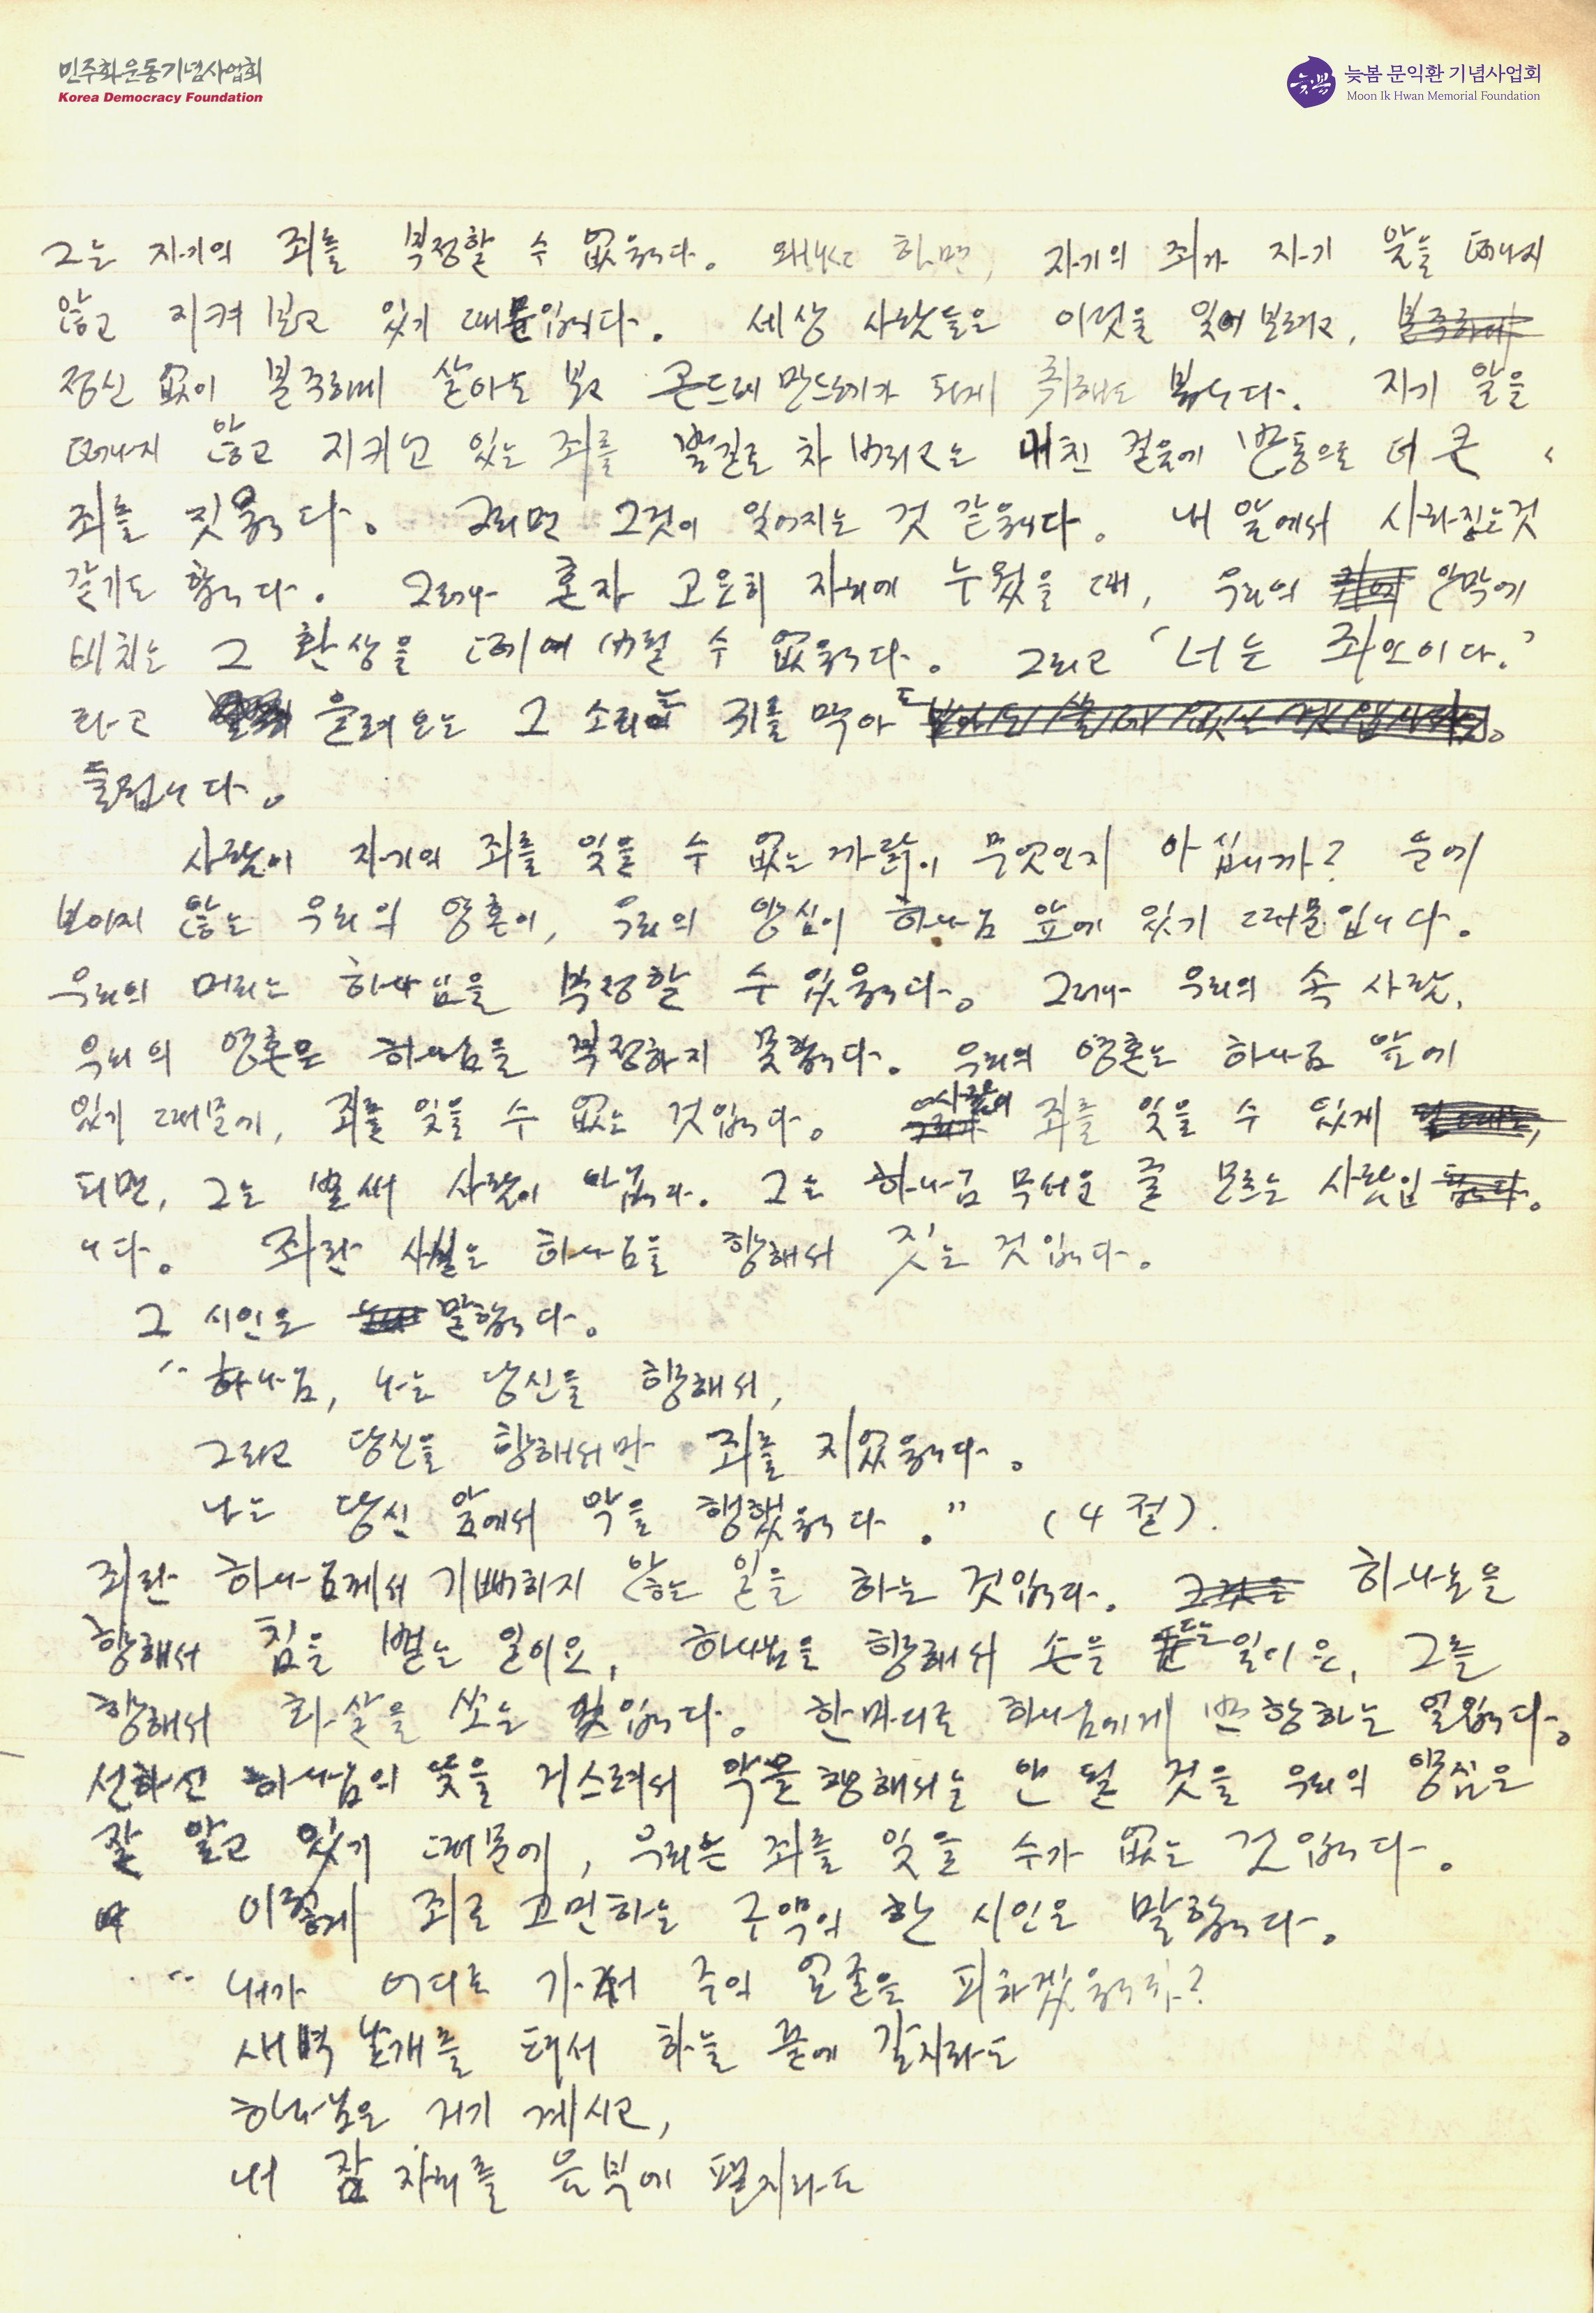 민주화운동기념사업회
Korea Democracy Foundation
늦봄 문익환 기념사업회
Moon Ik Hwan Memorial Foundation
그는 자기의 죄를 부정할 수 없읍니다. 왜냐고 하면, 자기의 죄가 자기 앞을 떠나지
않고 지켜 보고 있기 때문입니다. 세상 사람들은 이것을 잊어 보려고,
정신 없이 분주하게 살아도 보고 곤드레 만드레가 되게 취해도 봅니다. 자기 앞을
떠나지 않고 지키고 있는 죄를 발길로 차 버리고는 내친 걸음에 반동으로 더 큰
죄를 짓읍니다. 그러면 그것이 잊어지는 것 같읍니다. 내 앞에서 사라지는것
같기도 합니다. 그러나 혼자 고요히 자리에 누웠을 때, 우리의 안막에
비치는 그 환상을 떼어 버릴 수 없읍니다. 그리고 '너는 죄인이다.'
라고 들려 오는 그 소리는 귀를 막아도
들립니다.
사람이 자기의 죄를 잊을 수 없는 까닭이 무엇인지 아십니까? 눈에
보이지 않는 우리의 영혼이, 우리의 양심이 하나님 앞에 있기 때문입니다.
우리의 머리는 하나님을 부정할 수 있읍니다. 그러나 우리의 속 사람,
우리의 영혼은 하나님을 부정하지 못합니다. 우리의 영혼는 하나님 앞에
있기 때문에, 죄를 잊을 수 없는 것입니다. 사람이 죄를 잊을 수 있게
되면, 그는 벌써 사람이 아닙니다. 그는 하나님 무서운 줄 모르는 사람입
니다. 죄란 사실는 하나님을 향해서 짓는 것입니다.
그 시인은 말합니다.
"하나님, 나는 당신을 향해서,
그리고 당신을 향해서만 죄를 지었읍니다.
나는 당신 앞에서 악을 행했읍니다." (4절).
죄란 하나님께서 기뻐하지 않는 일을 하는 것입니다. 하나님을
향해서 침을 뱉는 일이요, 하나님을 향해서 손을 드는 일이요, 그를
향해서 화살을 쏘는 것입니다. 한마디로 하나님에게 반항하는 일입니다.
선하신 하나님의 뜻을 거스려서 악을 행해서는 안 될 것을 우리의 양심은
잘 알고 있기 때문에, 우리는 죄를 잊을 수가 없는 것입니다.
이렇게 죄로 고민하는 구약의 한 시인은 말합니다.
"내가 어디로 가서 주의 얼굴을 피하겠읍니까?
새벽 날개를 타서 하늘 끝에 갈지라도
하나님은 거기 계시고,
내 잠 자리를 음부에 펼지라도